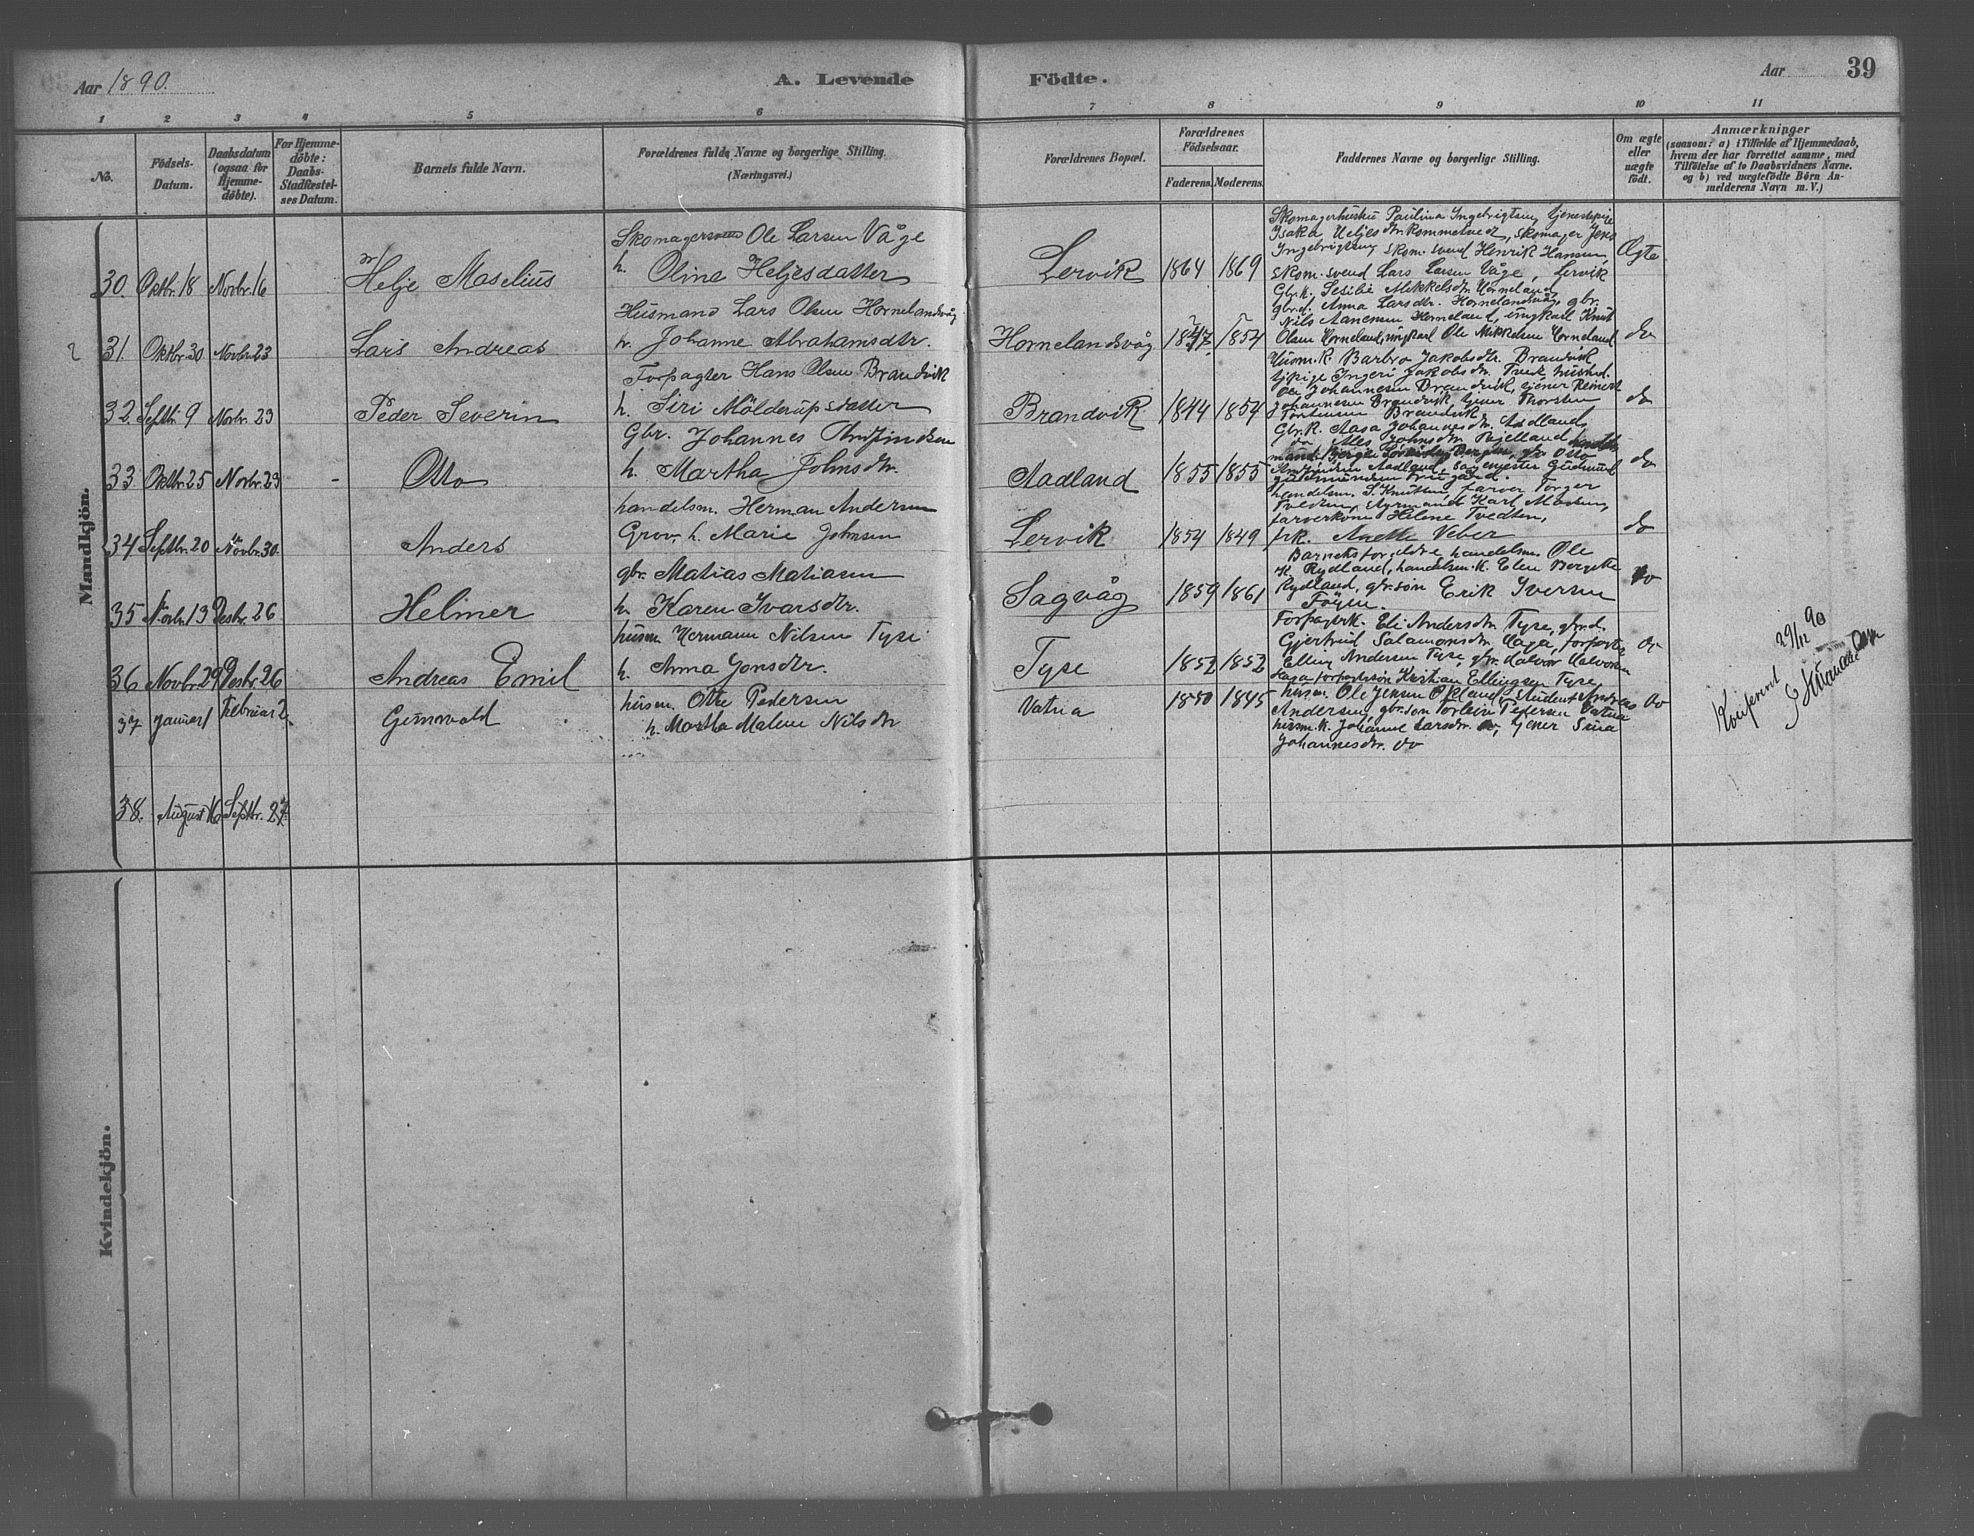 Aar 1890.
A. Levende Födte.
Aar
39
1 2 3 4 5 6 7 8 9 10 11
No.
Födsels-Datum.
Daabsdatum (ogsaa for Hjemme-döbte).
For Hjemme-döbte: Daabs-Stadfæstel-ses Datum.
Barnets fulde Navn.
Forældrenes fulde Navne og borgerlige Stilling. (Næringsvei.)
Forældrenes Bopæl.
Forældrenes Födselsaar.
Faderens. Moderens.
Faddernes Navne og borgerlige Stilling.
Om ægte eller uægte födt.
Anmærkninger
(saasom: a) i Tilfælde af Hjemmedaab, hvem der har forrettet samme, med Tilföielse af to Daabsvidners Navne. og b) ved uægtefödte Börn An-melderens Navn m. V.)
Mandkjön.
30. Oktbr. 18 Novbr. 16 Helje Maselius
Skomagersvend Ole Larsen Våge
h. Oline Heljesdatter
Lervik 1864 1869
Skomagerhustru Paulina Ingebrigtsen, tjenestepige
Isaka Heljesdtr. Kommelvedt, Skomager Jens
Ingebrigtsen, skom. svend Henrik Hansen,
skom. svend Lars Larsen Våge, Lervik
Ægte
31. Oktbr. 30 Novbr. 23 Lars Andreas
Husmand Lars Olsen Hornelandsvåg
h. Johanne Abrahamsdtr.
Hornelandsvåg 1847. 1854
Gbr.k. Sesilie Mikkelsdtr. Horneland,
gbr.d. Anna Larsdtr. Hornelandsvåg, gbr.
Nils Aanensen Horneland, ungkarl Knut
Olsen Horneland, ungkarl Ole Mikkelsen Horneland
do
32. Septbr. 9 Novbr. 23 Peder Severin
Forpagter Hans Olsen Brandvik
h. Siri Mölderupsdatter
Brandvik 1844 1854
Husm.k. Barbro Jakobsdtr. Brandvik
tjpige Ingeri Jakobsdtr.
Johannesen Brandvik, tjener Reinert
Johannesen Brandvik, tjener Thorsten
Torstensen Brandvik.
do
33 Oktbr. 25 Novbr. 23 - Otto
Gbr. Johannes Andfindsen
h. Martha Johnsdtr.
Aadland 1855 1855
Gbr.k. Aasa Johannesdtr. Aadland,
do Ales Johnsdtr. Bjelland
Otto
Andfindsen Aadland, bagemester Gudmund
do
34 Septbr. 20 Novbr. 30. Anders
handelsm. Herman Andersen
Grov. h. Marie Johnsen
Lervik 1854 1849
handelsm. S. Knutsen, farver Torger
Tvedten, Styrmand Karl Monsen,
farverkone Helene Tvedten,
frk. Anette Veber
do
35 Novbr. 13 Desbr. 26 Helmer
gbr. Matias Matiasen
h. Karen Ivarsdtr.
Sagvåg 1859 1861
Barnets forældre, handelsm. Ole
K. Rydland, handelsm.k. Elen Bergette
Rydland, gbr.sön Erik Iversen
Föyen.
do
36 Novbr. 29 Desbr. 26 Andreas Emil
husm. Hermann Nilsen Tyse
h. Anna Jonsdtr.
Tyse 1852 1852
Forpagt.k. Eli Andersdtr. Tyse, gbr.d.
Gjertrud Salamonsdtr. Haga, forpagter
Elling Andersen Tyse, gbr. Halvor Halvorsen
Haga, forpagtersön Kristian Ellingsen Tyse
Do
37 Januar 1 Februar 2. Gunnvald
husm. Otte Pedersen
h. Martha Malene Nilsdtr
Vatna 1850 1845
husm. Ole Jensen Økland, Student Andreas
Andersen, gbr. sön Torleiv Pedersen Vatna
husm. k. Johanne Larsdtr. do, tjener Sina
Johannesdtr. do
Do
38. August 16 Septbr. 27.
Konfereret 29/12 90
Kvindekjön.